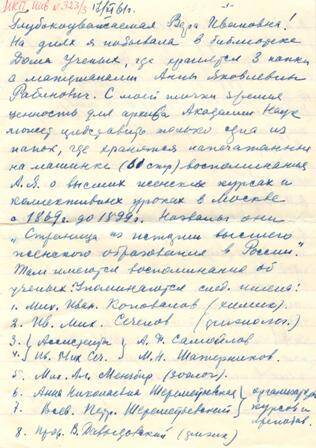 МКП, инв № 323/3 13/IV 61г.
Глубокоуважаемая Вера Ивановна!
На днях я побывала в библиотеке
Дома Ученых, где хранятся 3 папки
с материалами Анны Яковлевны
Рабинович. С моей точки зрения
ценность для архива Академии Наук
может представить только одна из
папок, где хранятся напечатанные
на машинке (стр) воспоминания
А.Я. о высших женских курсах и
коллективных уроках в Москве
с 1869г. до 1899г. Названы они
"Страница из истории высшего
женского образования в России".
Там имеются воспоминание об
ученых: Упоминаются след. имена:
1. Мих. Иван. Коновалов (химик).
2. Ив. Мих. Сеченов (физиолог).
3. Ассистенты А.Ф. Самойлов
4. Ив. Мих. Сеч. М.Н. Шатерников.
5. Мих. Ал. Мензбир (зоолог).
6. Анна Николаевна Шереметевская организаторы
7. Всев. Петр. Шереметевский курсов и преподав.
8. Проф. (физик)